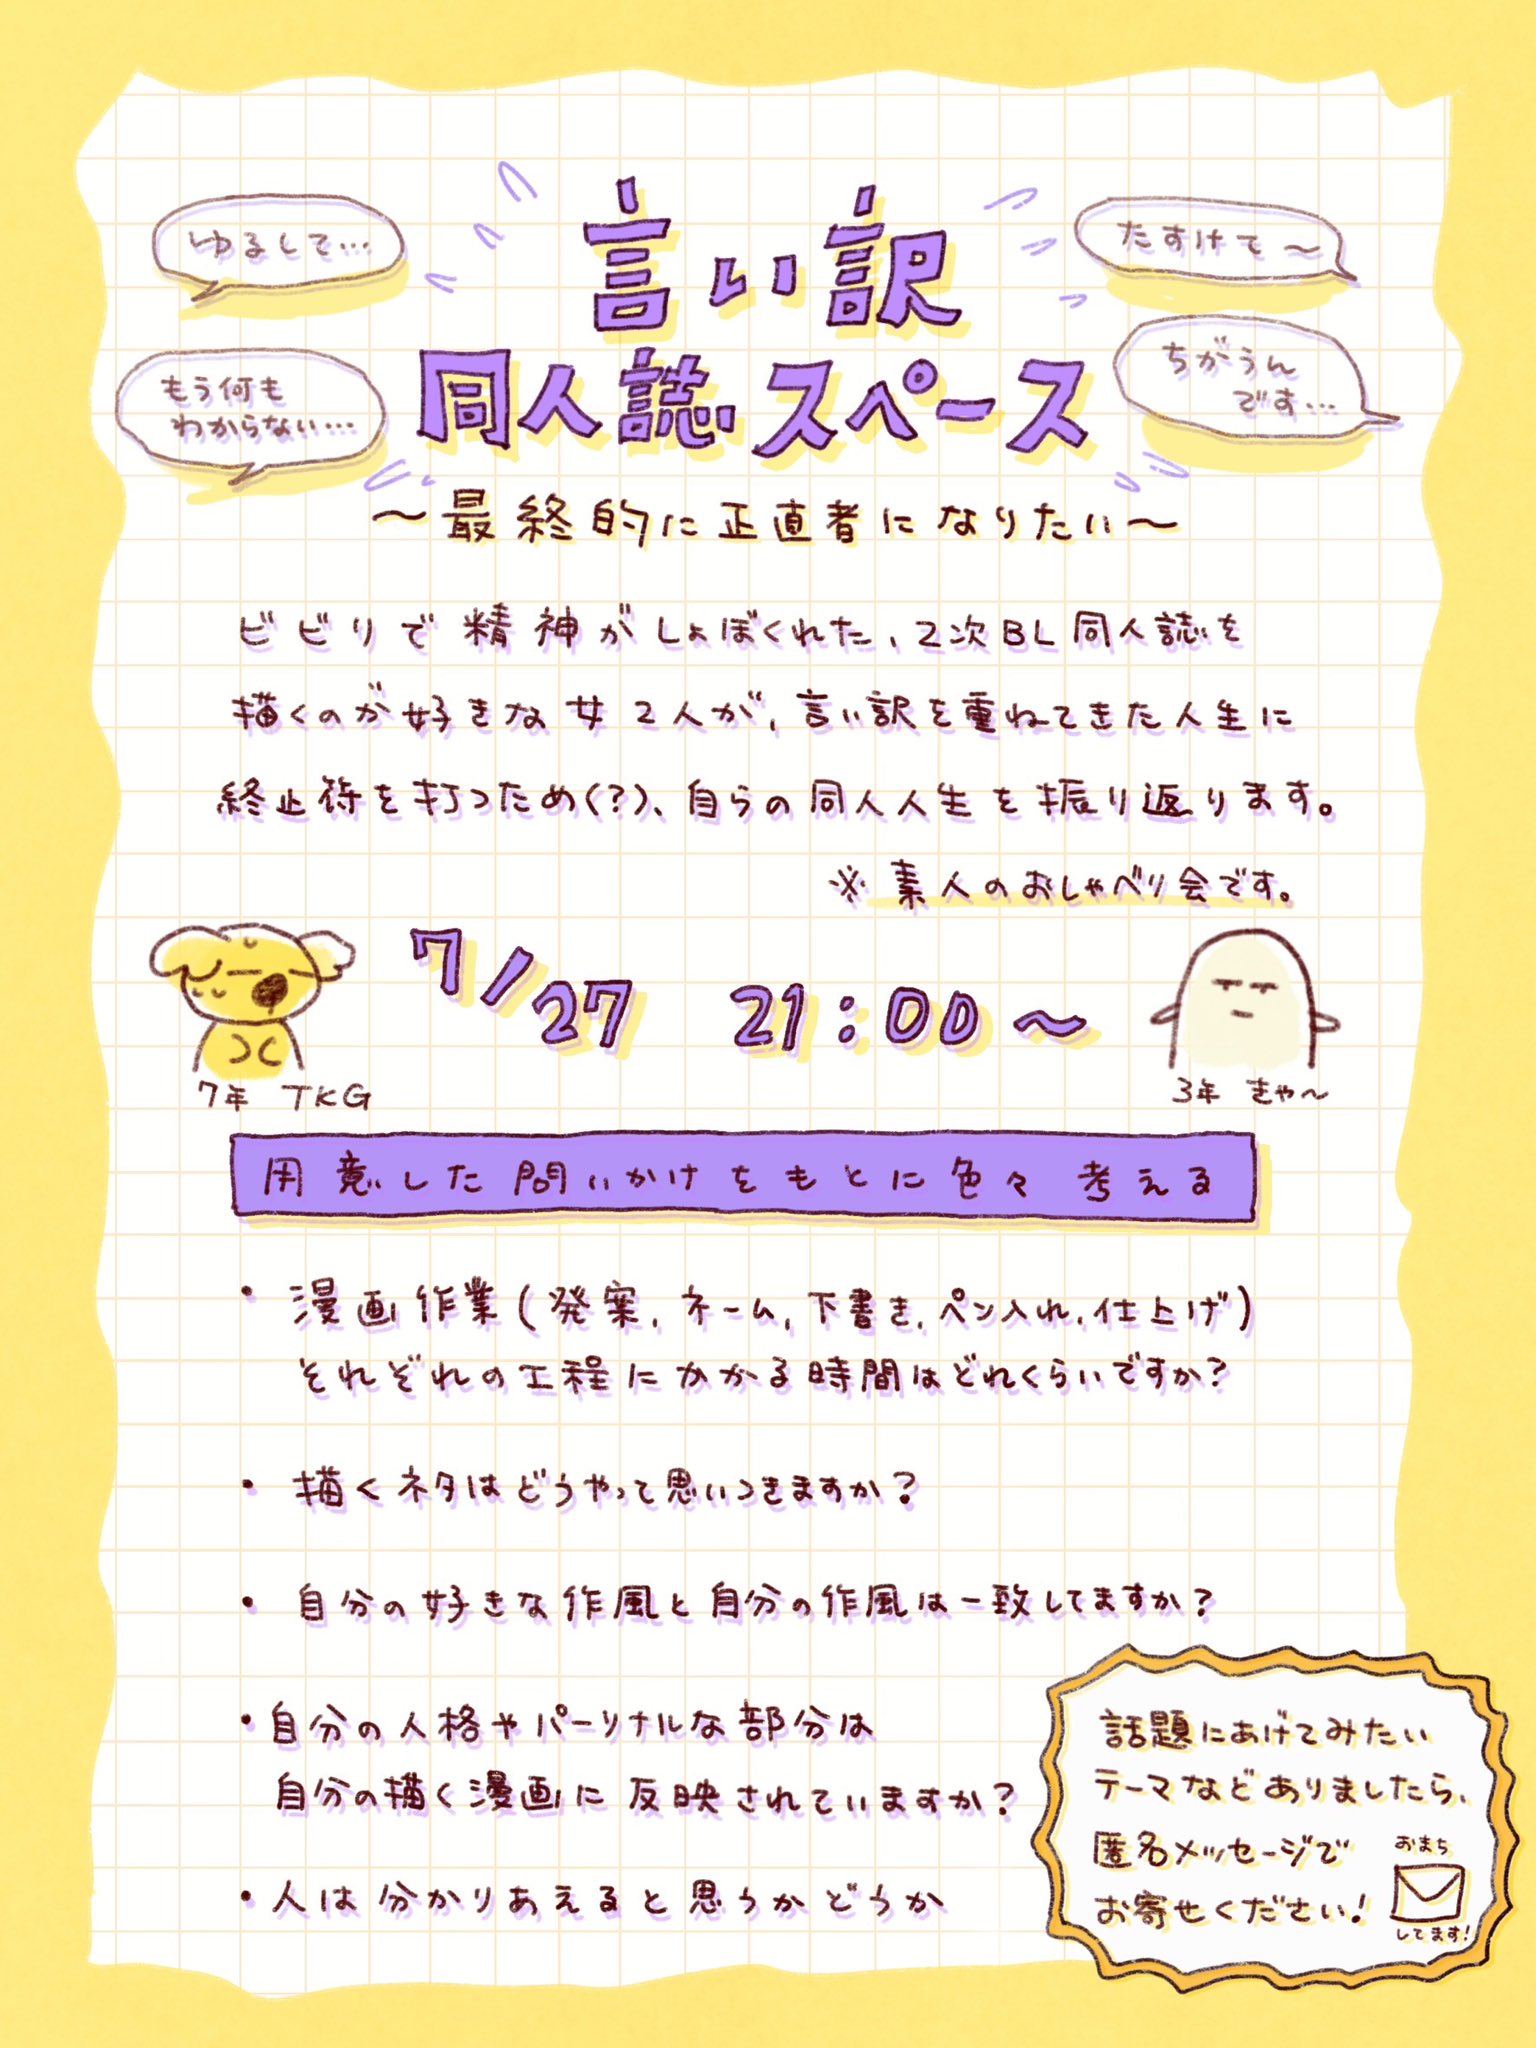 ゆるして…
たすけて〜
言い訳
もう何も
わからない…
ちがうん
です…
同人誌スペース
〜最終的に正直者になりたい〜
ビビリで精神がしょぼくれた、2次BL同人誌を
描くのが好きな女2人が、言い訳を重ねてきた人生に
終止符を打つため(?)、自らの同人人生を振り返ります。
※素人のおしゃべり会です。
7/27 21:00〜
7年 TKG
3年 きゃ〜
用意した問いかけをもとに色々考える
・漫画作業(発案、ネーム、下書き、ペン入れ、仕上げ)
それぞれの工程にかかる時間はどれくらいですか?
・描くネタはどうやって思いつきますか?
・自分の好きな作風と自分の作風は一致してますか?
・自分の人格やパーソナルな部分は
自分の描く漫画に反映されていますか?
・人は分かりあえると思うかどうか
話題にあげてみたい
テーマなどありましたら、
匿名メッセージで
お寄せください!
おまち
してます!